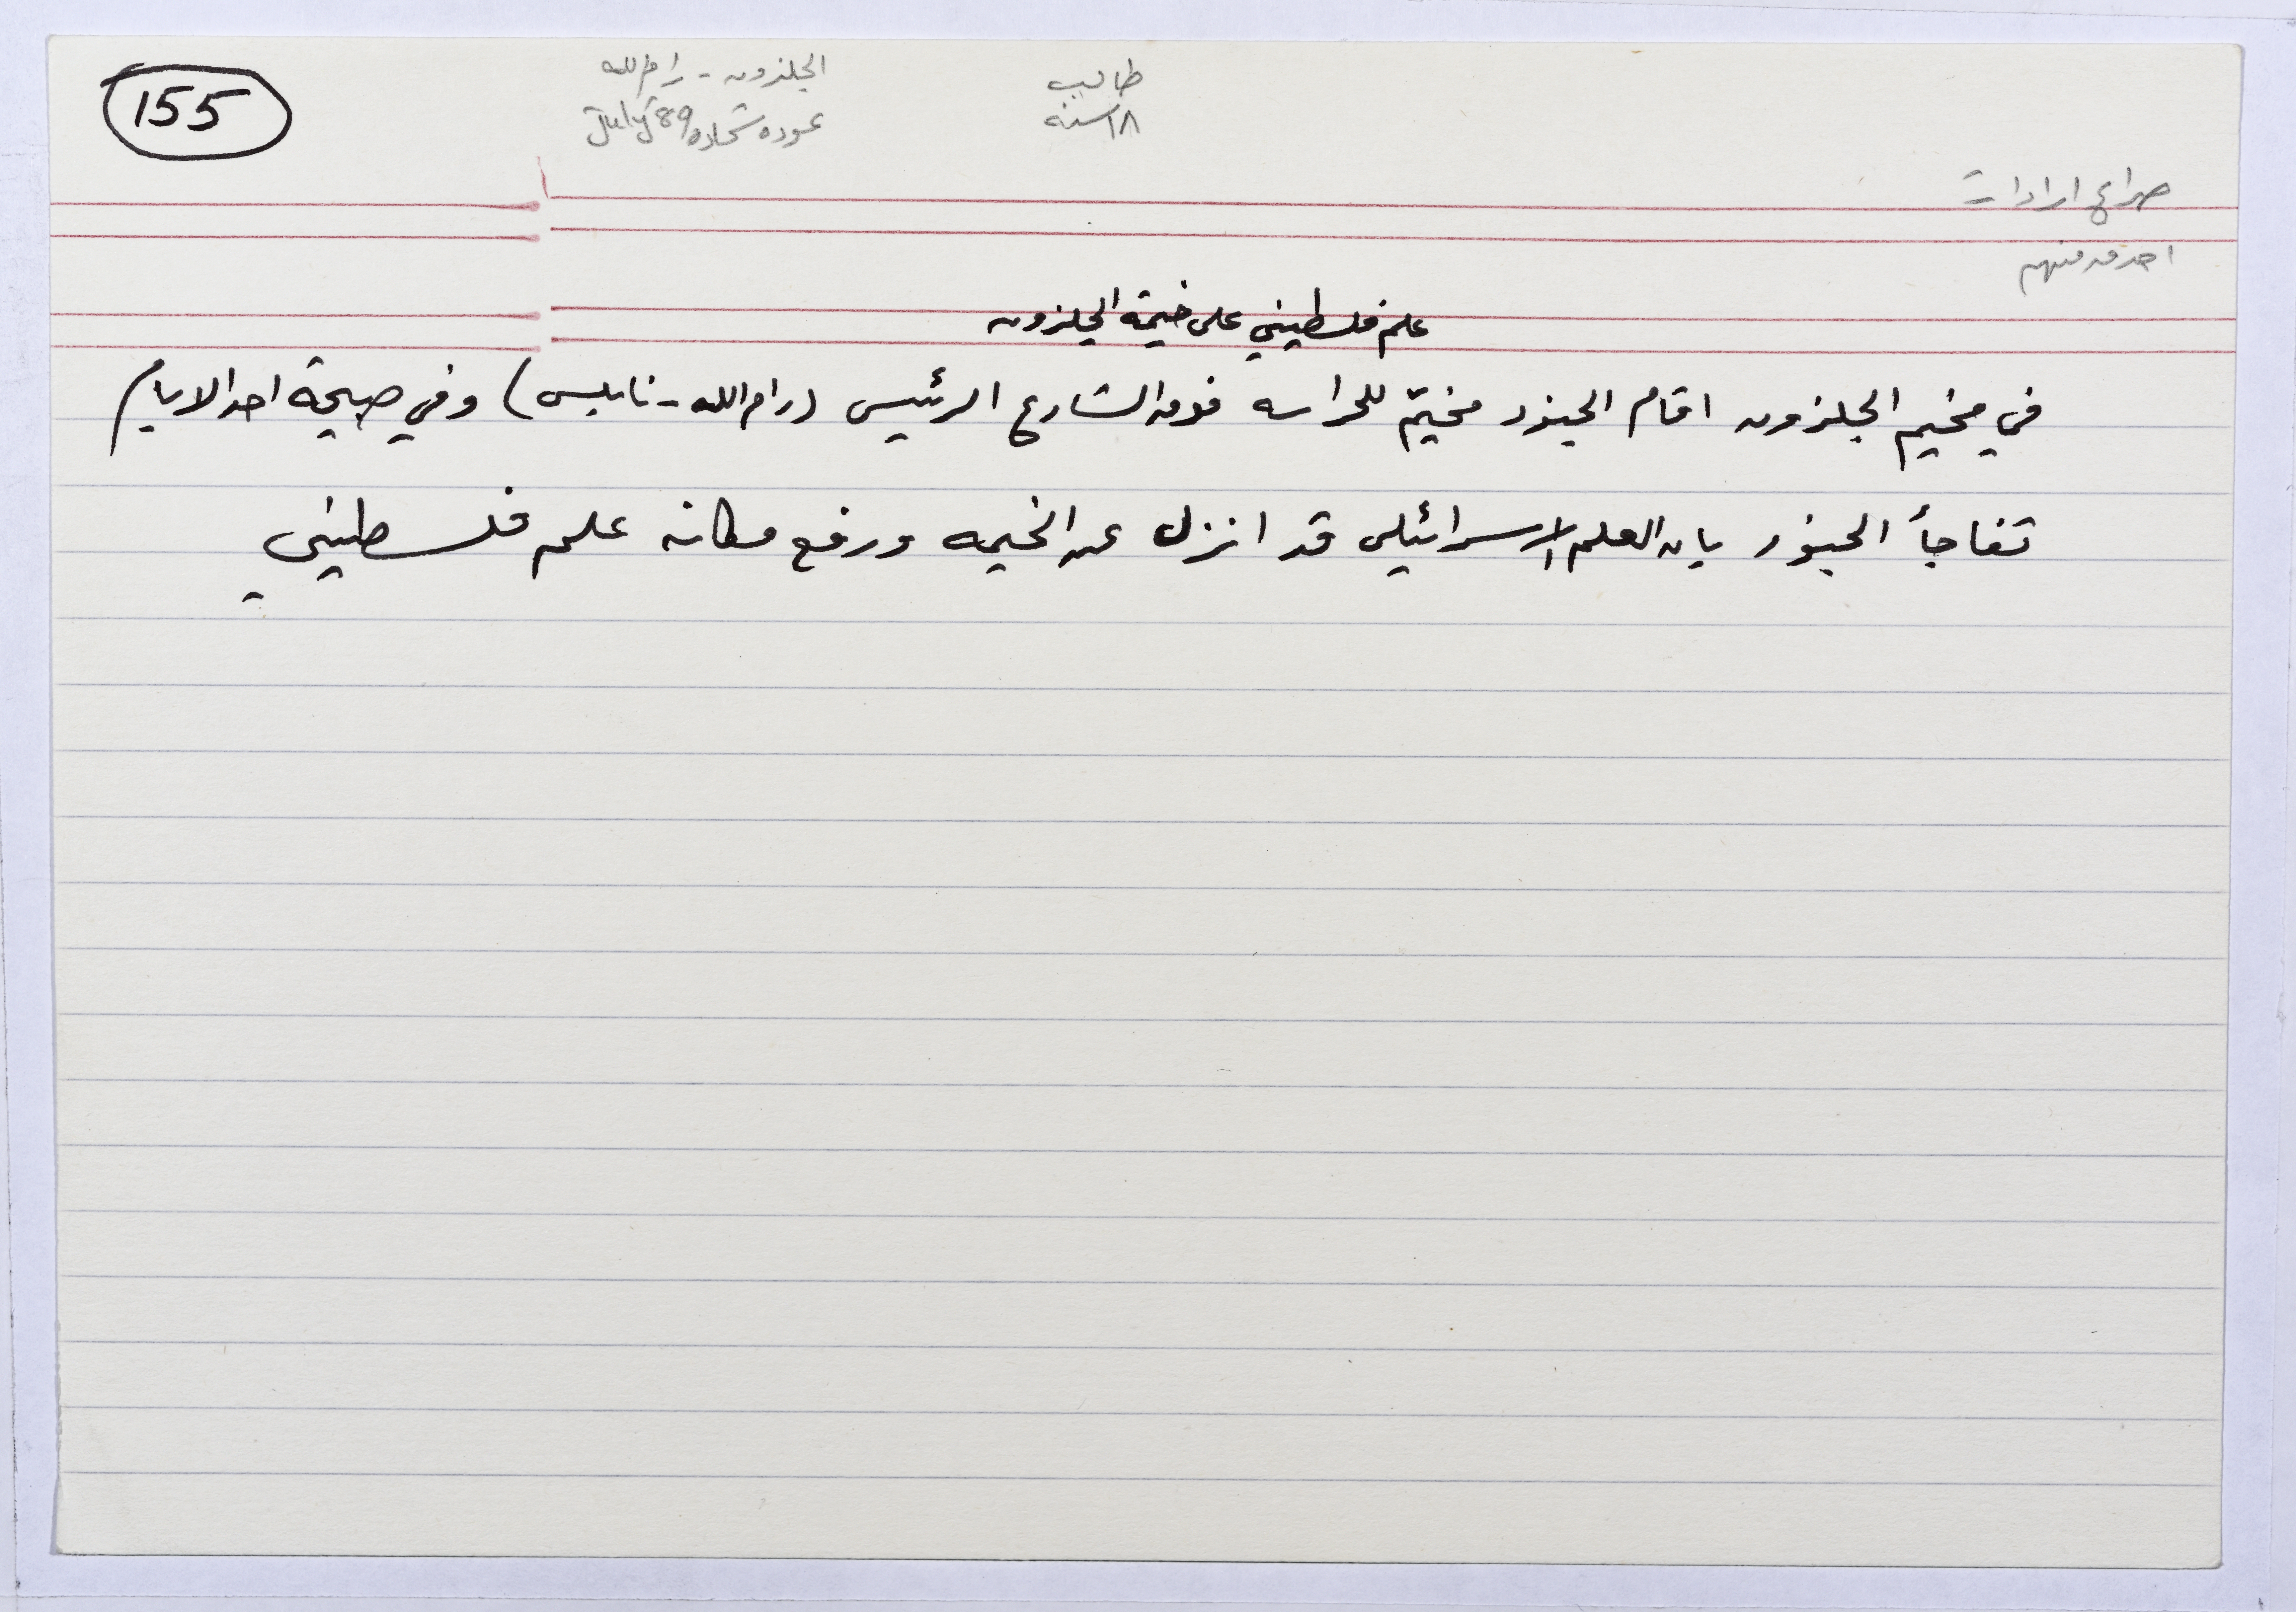 155
الجلزون - رام الله
عوده شحاده July 89
طالب
١٨ سنه
صراع ارادات
احدى منهم
علم فلسطيني على خيمة الجلزون
في مخيم الجلزون اقام الجنود مخيّم للحراسه فوق الشارع الرئيسي (رام الله - نابلس) وفي صبيحة احد الايام
تفاجأ الجنود بان العلم الاسرائيلي قد انزل عن الخيمه ورفع مكانه علم فلسطيني